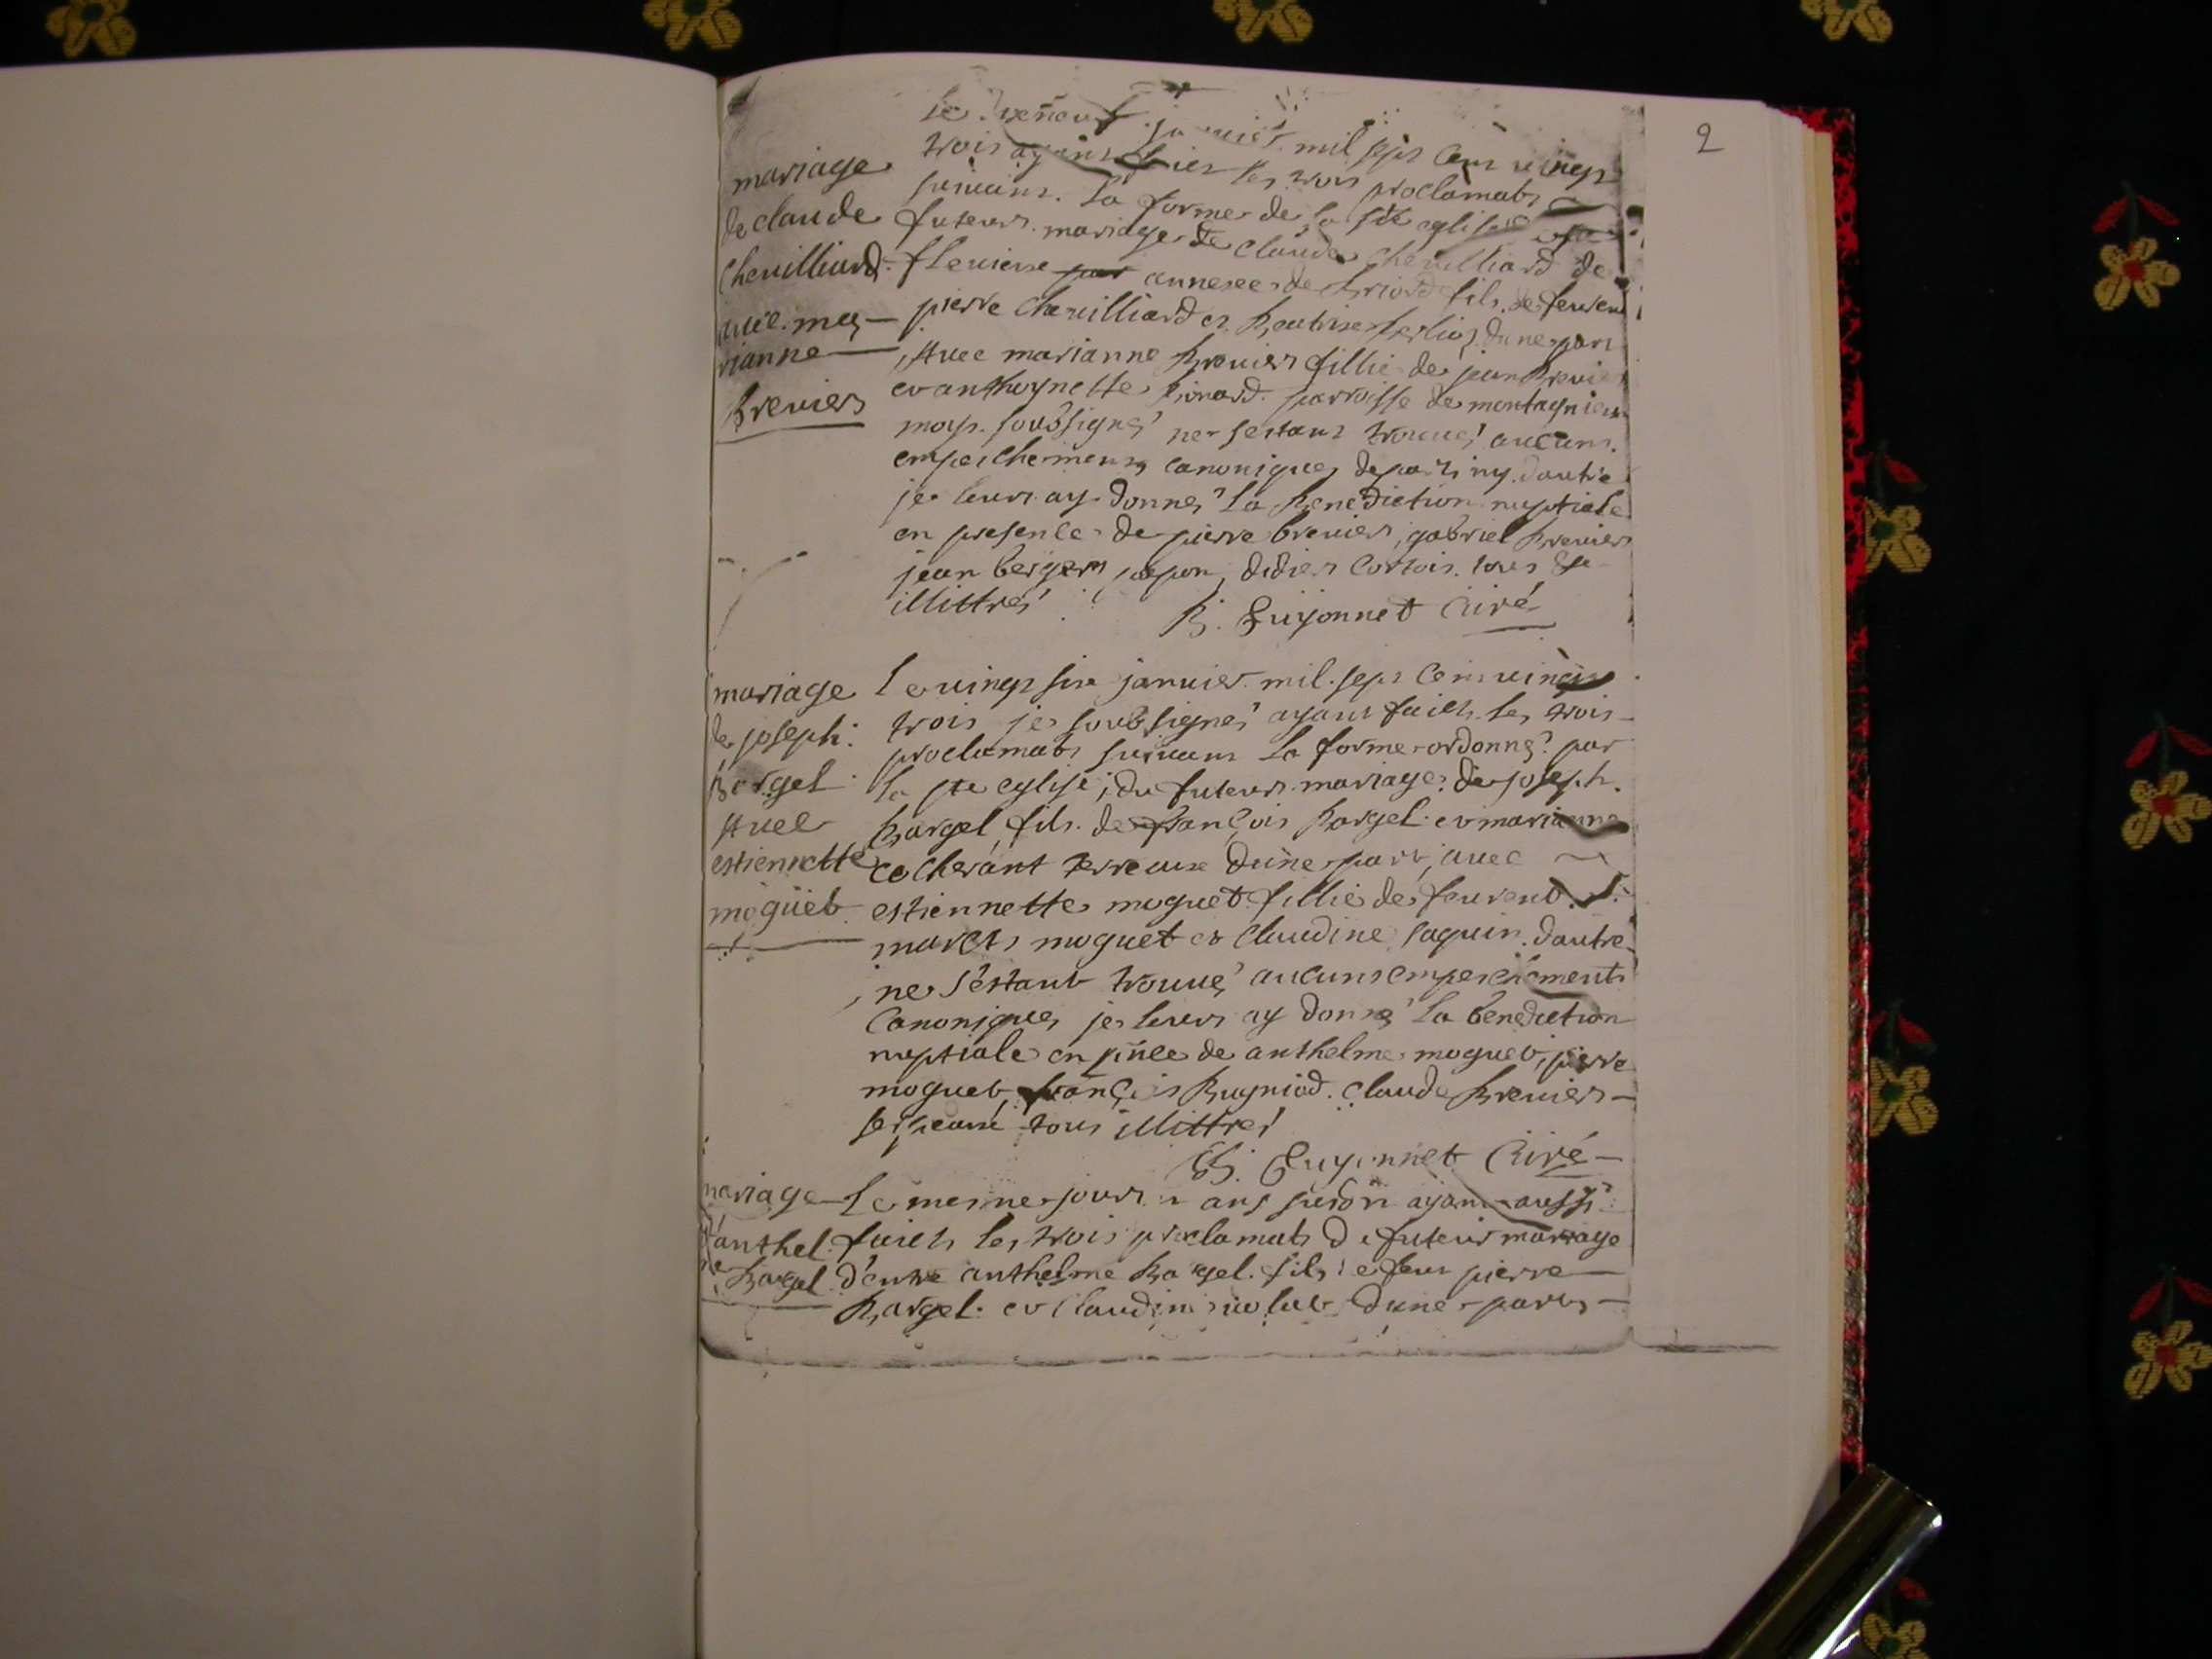 2
mariage
de claude
Cheuilliard
auec mas
rianne
Breuier
janvier mil sept cens vingt
trois ayant faict les trois proclamats
suiuant la forme de la ste eglise
futeur mariage de claude Cheuilliard de
fleuieu annexee de Briord fils de feurent
pierre Cheuilliard et dune part
Auec marianne Breuier fillie de jean Breuier
et anthoynette parroisse de montagnieu
moy soubsigné ne sestant trouué aucuns
empeschements canoniques depart ny dautre
je leur ay donné la Benediction nuptiale
en presence de pierre breuier, gabriel Breuier
jean berger didier Cortois tous
illittré
B. Guyonnet Curé
mariage
de joseph
Bargel
Auec
estiennette
moguet
Le vingt six januier mil sept cens vingt
trois je soubsigné ayant faict les trois
proclamats suiuant la forme ordonné par
la ste eglise, du futeur mariage de joseph
Bargel fils de françois Bargel et marianne
cocherant dune part, auec
estiennette moguet fillie de feurent
marcts moguet et Claudine saguin dautre
ne s'estant trouué aucuns empeschements
Canoniques je leurs ay donné la benediction
nuptiale en pnce de anthelme moguet, pierre
moguet, françois Bugniod Claude Breuier
tous illittré
B. Guyonnet Curé
mariage
d'anthel
me
Bargel
Le mesme jour et ans ayant aussi
faicts les trois proclamats de futeur mariage
d'entre anthelme Bargel fils de feu pierre
Bargel et Claudine dune part